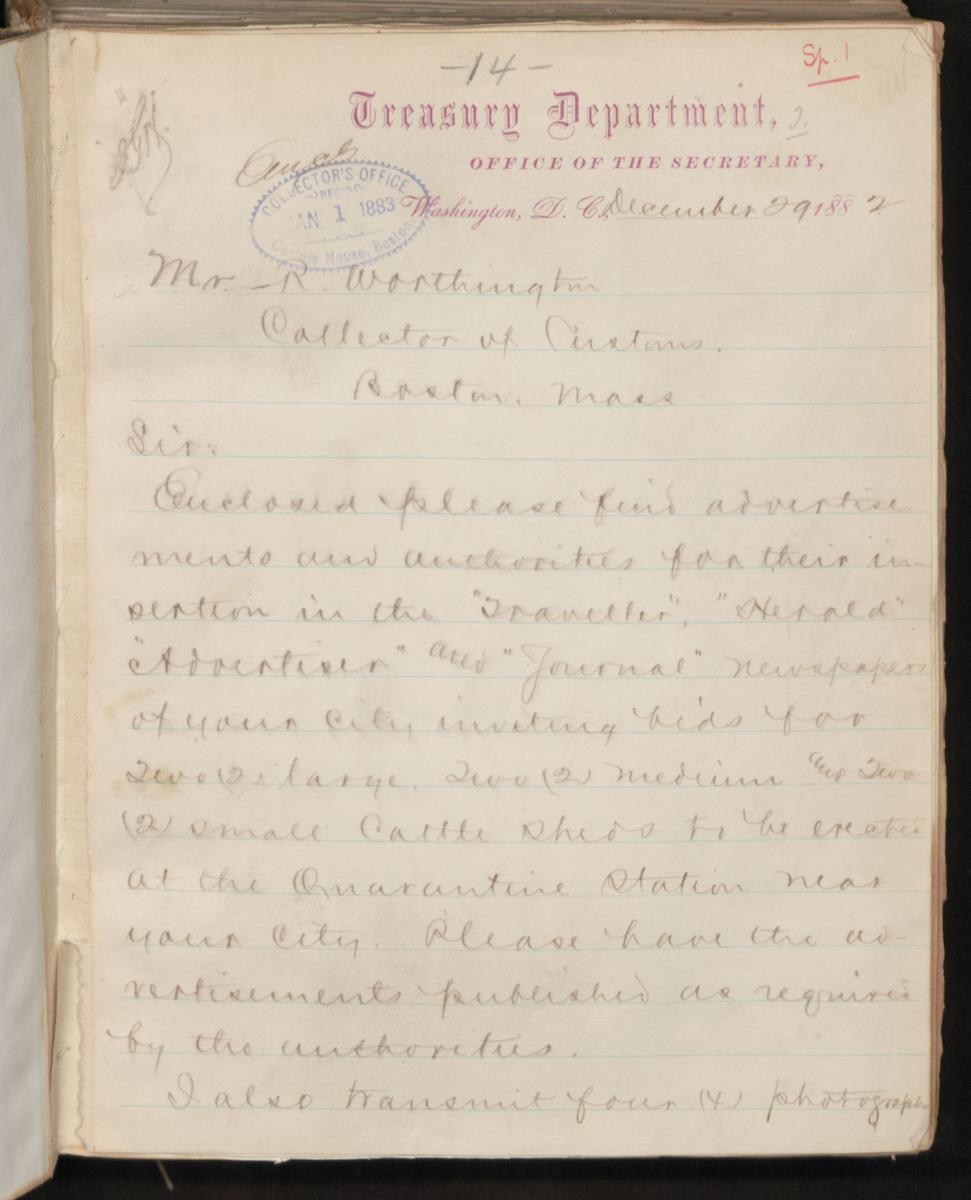 -14-
Sp. 1
Treasury Department,
OFFICE OF THE SECRETARY,
COLLECTOR'S OFFICE
REC'D
JAN 1 1883
Custom House, Boston.
Washington, D. C., December 29 1882
Mr. R. Worthington
Collector of Customs.
Boston. Mass
Sir:
Enclosed please find advertise
ments and authorities for their in-
sertion in the "Traveller", "Herald"
"Advertiser" and "Journal" newspapers
of your city, inviting bids for
Two (2) large. Two (2) medium and Two
(2) small Cattle Sheds to be erected
at the Quarantine Station near
your City. Please have the ad-
vertisements published as required
by the authorities.
I also transmit four (4) photograph